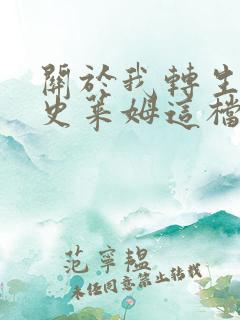 關於我轉生
史萊姆這檔
范寧韞
未经同意禁止转载